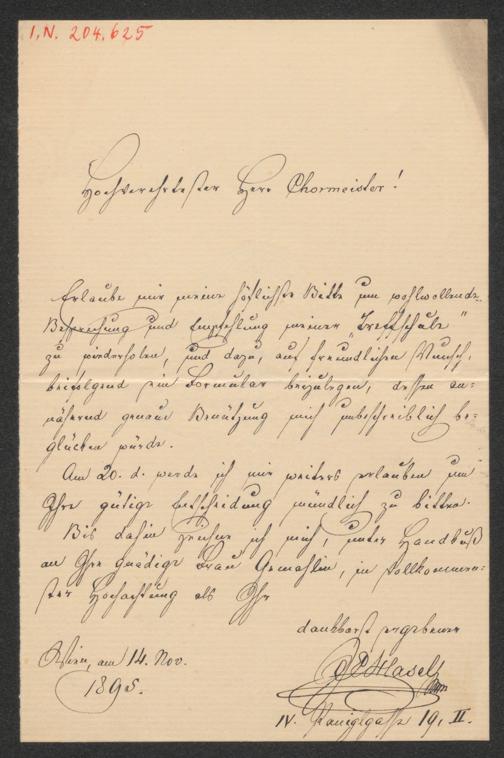 I.N. 204.625
Hochverehrtester Herr Chormeister!
Erlaube mir meine höflichste Bitte um wohlwollende
Besprechung und Empfehlung meiner „Treffschule"
zu wiederholen, und dazu, auf freundlichen Wunsch,
beifolgend ein Formular beizulegen, dessen an=
nähernd genaue Benützung mich unbeschreiblich be=
glücken würde.
Am 20. d. werde ich mir weiters erlauben um
Ihre gütige Entscheidung mündlich zu bitten.
Bis dahin zeichne ich mich, unter Handkuß
an Ihre gnädige Frau Gemahlin, in vollkommen=
ster Hochachtung als Ihr
dankbarst ergebener
Wien, am 14. Nov.
1895.
Hasel
IV. 19, II.